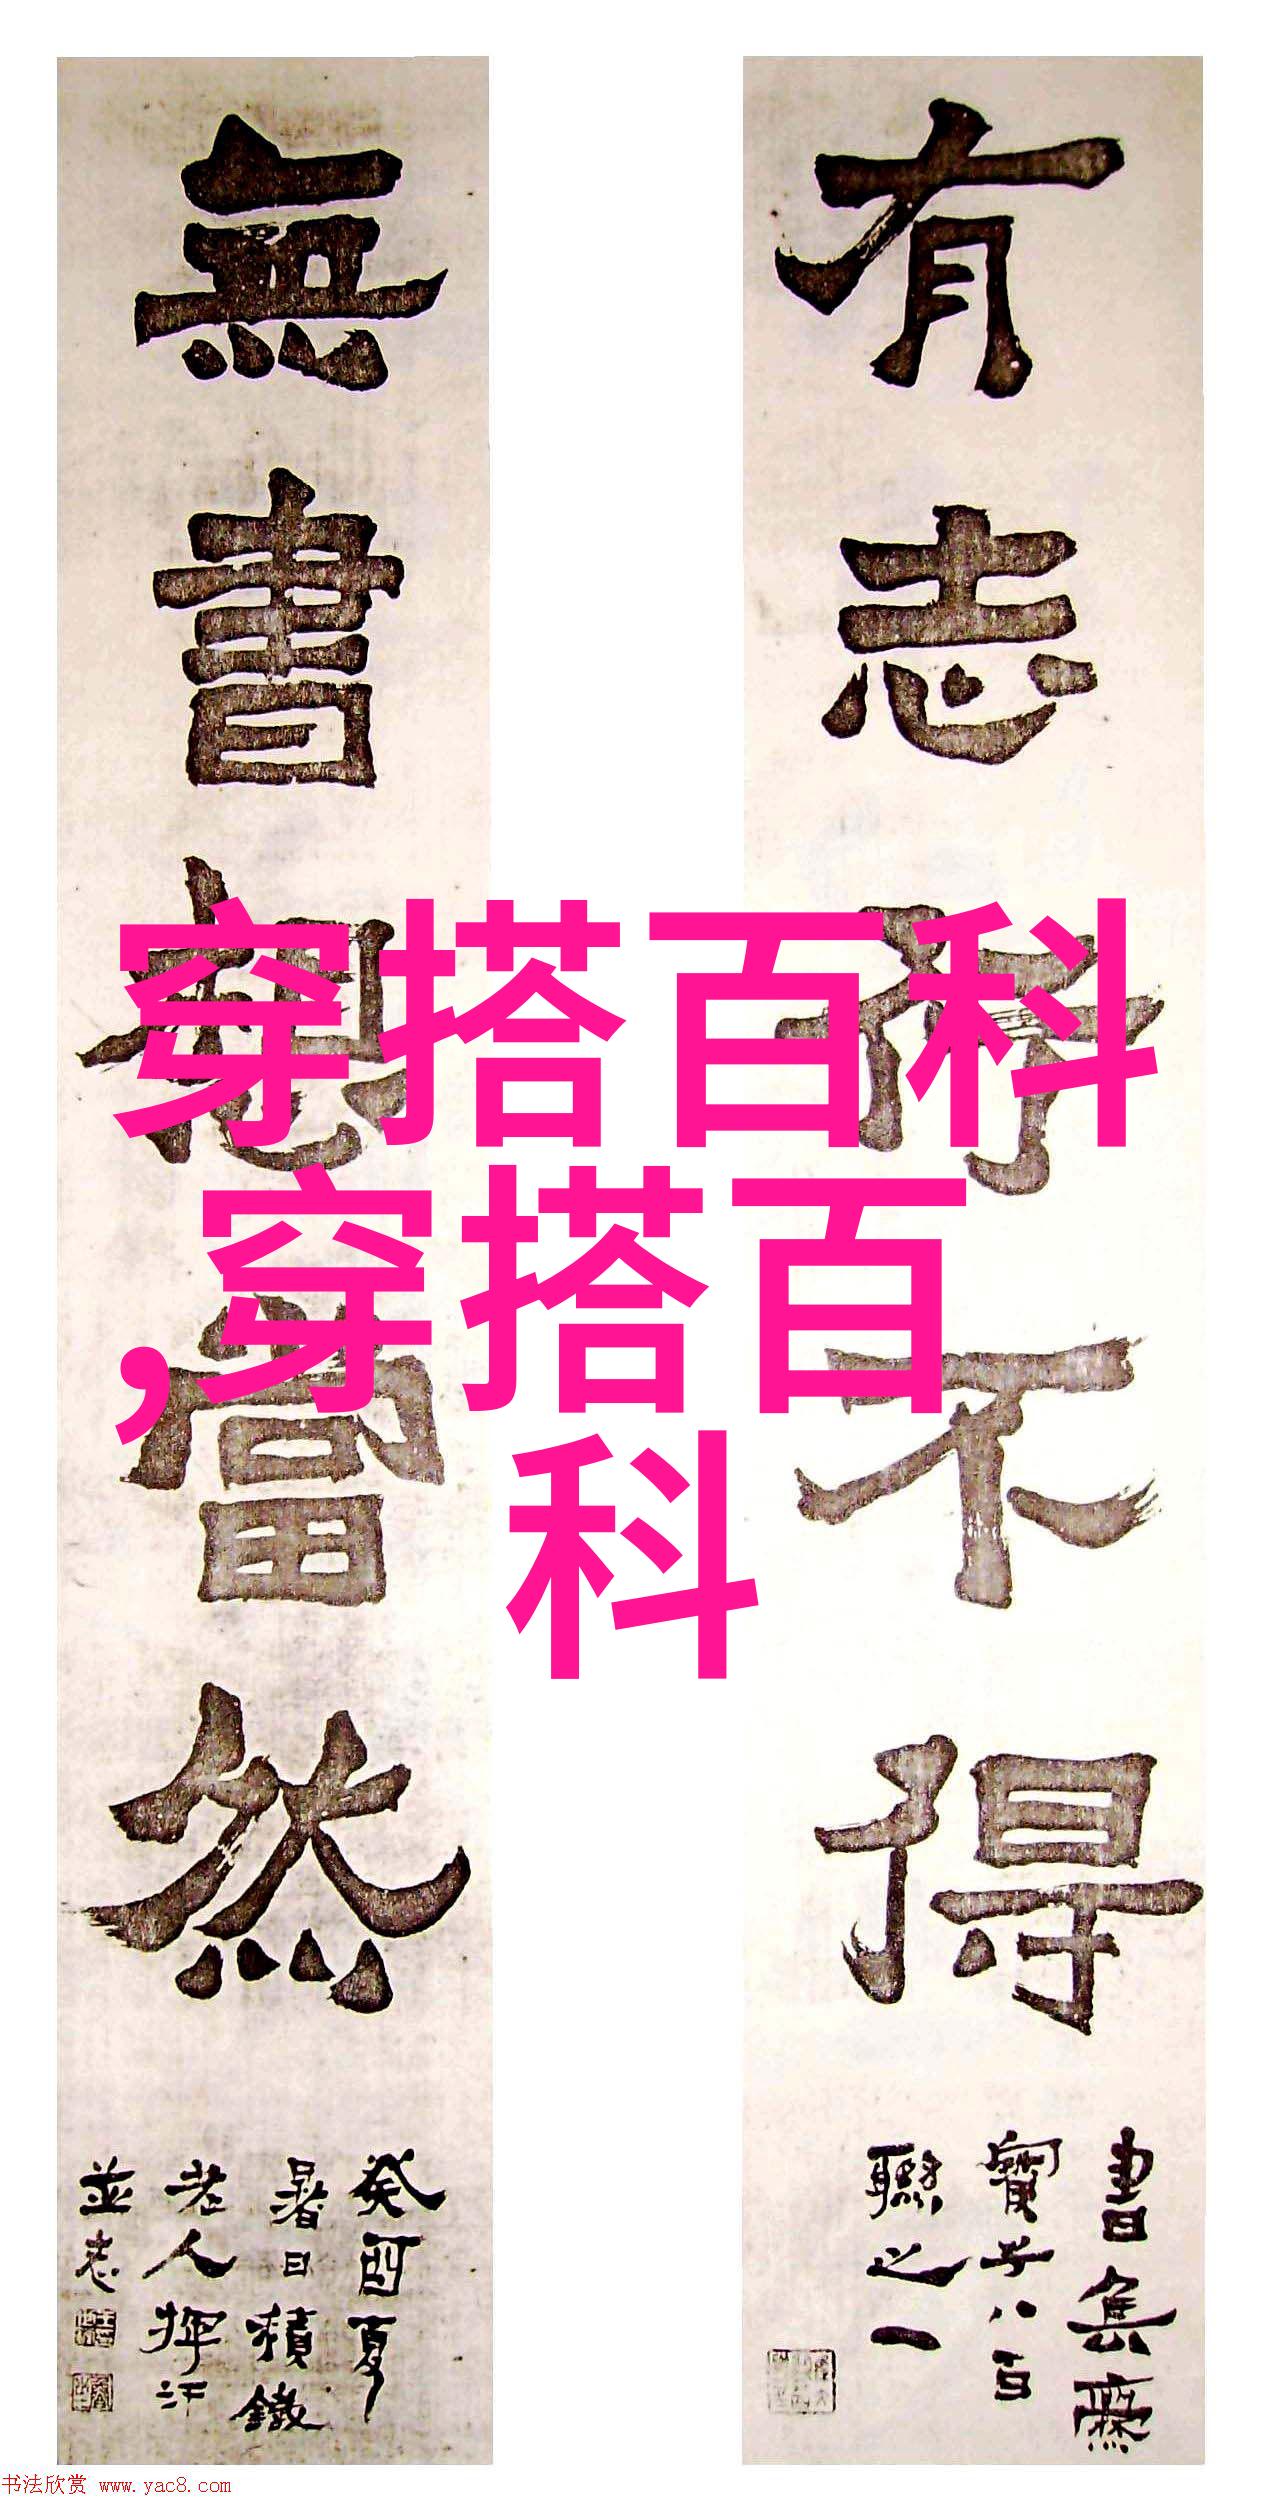 有志行不得
書焦廡
寶子八百
聯之一
無書想當然
癸酉夏
暑日積鐵
老人揮汗
並志
穿搭百科
,穿搭百
科
书法欣赏 www.yac8.com